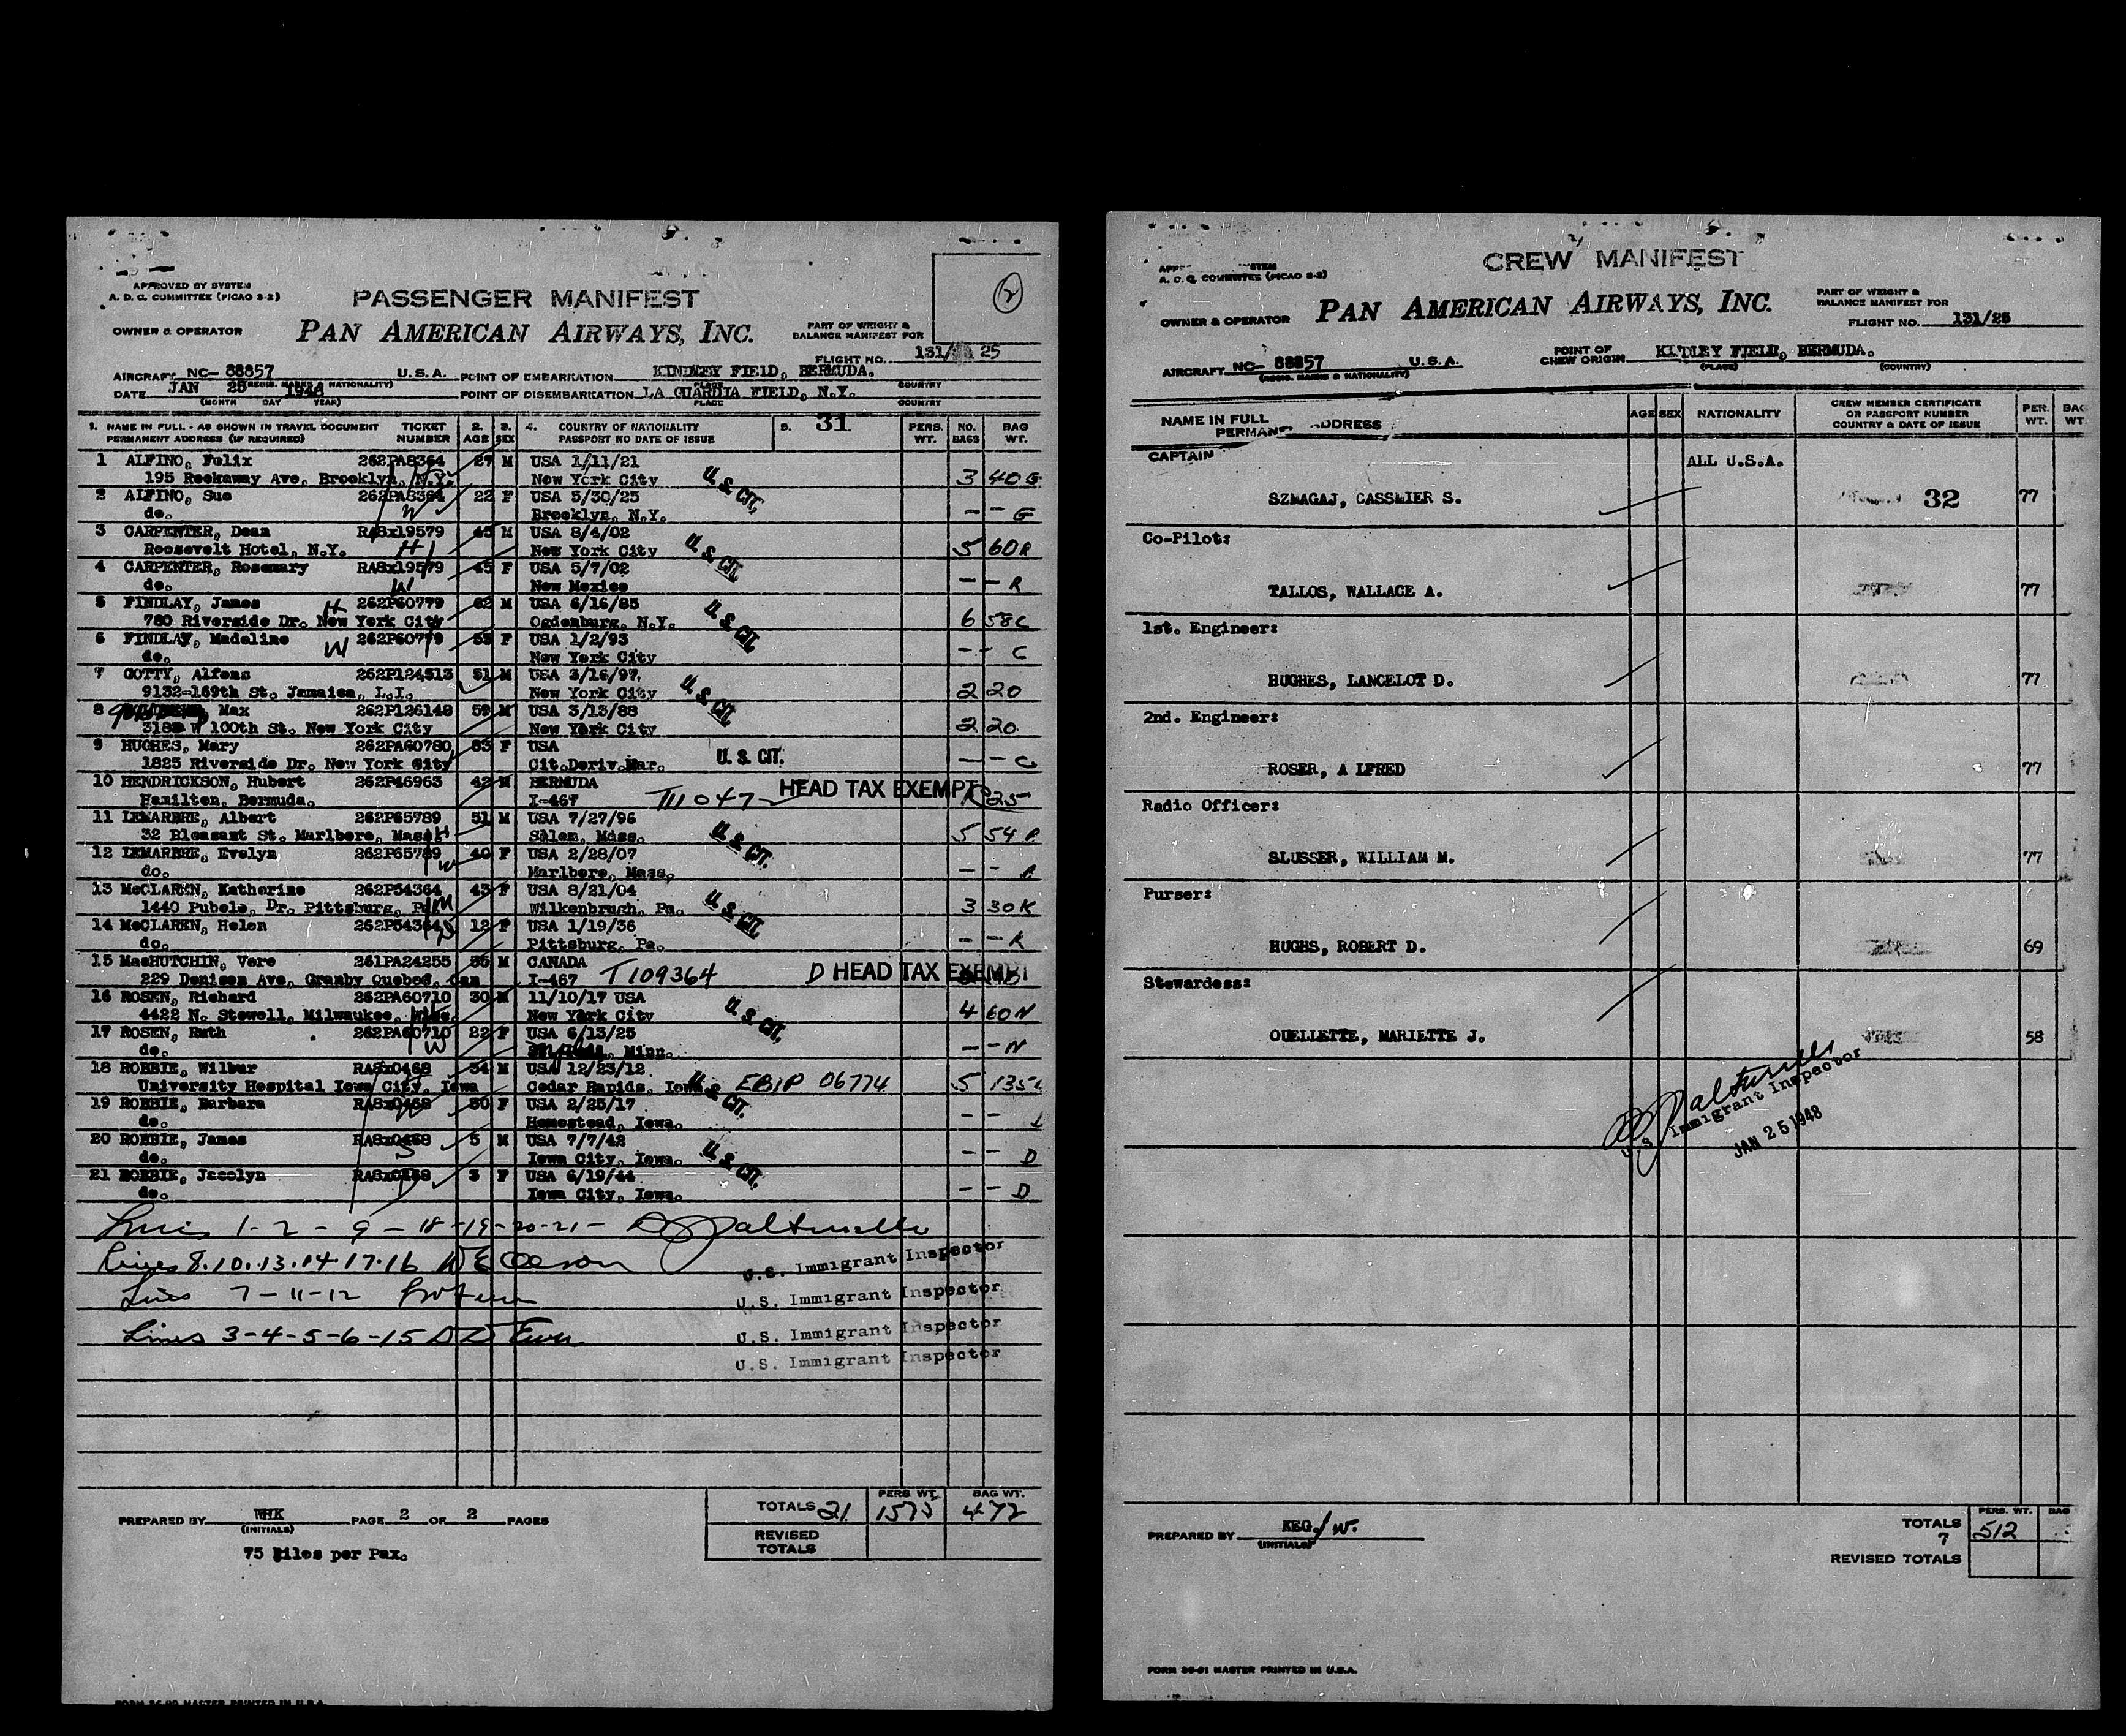 APPROVED BY SYSTEM
A. D. C. COMMITTEE (PICAO 3-2)
PASSENGER MANIFEST
2
OWNER & OPERATOR
PAN AMERICAN AIRWAYS, INC.
PART OF WEIGHT &
BALANCE MANIFEST FOR
FLIGHT NO. 131/ 25
AIRCRAFT NC- 88857 U.S.A. POINT OF EMBARKATION KINDLEY FIELD, BERMUDA.
(REGIS. MARKS & NATIONALITY) PLACE COUNTRY
DATE JAN 25 1948 POINT OF DISEMBARKATION LA GUARDIA FIELD, N.Y.
(MONTH DAY YEAR) PLACE COUNTRY
1. NAME IN FULL - AS SHOWN IN TRAVEL DOCUMENT TICKET 2. 3. 4. COUNTRY OF NATIONALITY 5. 31 PERS. NO. BAG
PERMANENT ADDRESS (IF REQUIRED) NUMBER AGE SEX PASSPORT NO DATE OF ISSUE WT. BAGS WT.
1 ALFINO, Felix 262PA8364 27 M USA 1/11/21
195 Rockaway Ave. Brooklyn, N.Y. H New York City U. S. CIT. 3 40 G
2 ALFINO, Sue 262PA8364 22 F USA 5/30/25
do. W Brooklyn, N.Y. - - G
3 CARPENTER, Dean RASx19579 45 M USA 8/4/02
Roosevelt Hotel, N.Y. H New York City U. S. CIT. 5 60 R
4 CARPENTER, Rosemary RASx19579 45 F USA 5/7/02
do. W New Mexico - - R
5 FINDLAY, James H 262P60779 62 M USA 6/16/85
780 Riverside Dr. New York City Ogdenburg, N.Y. U. S. CIT. 6 58 C
6 FINDLAY, Madeline W 262P60779 55 F USA 1/2/93
do. New York City - - C
7 GOTTY, Alfons 262P124513 51 M USA 3/16/97.
9132-169th St. Jamaica, L.I. New York City U. S. CIT. 2 20
8 Max 262P126148 59 M USA 3/13/88
318 W 100th St. New York City New York City 2 20
9 HUGHES, Mary 262PA60780 83 F USA
1825 Riverside Dr. New York City Cit.Deriv.Mar. U. S. CIT. - - C
10 HENDRICKSON, Hubert 262P46963 42 M BERMUDA
Hamilton, Bermuda. I-467 T111047 HEAD TAX EXEMPT 25
11 LEMARBRE, Albert 262P65789 51 M USA 7/27/96
32 Pleasant St. Marlboro, Mass H Salem, Mass. U. S. CIT. 5 54 A
12 LEMARBRE, Evelyn 262P65789 40 F USA 2/28/07
do. W Marlboro, Mass. - - A
13 McCLAREN, Katherine 262P54364 43 F USA 8/21/04
1440 Pubele, Dr. Pittsburg, Pa. M Wilkenbrugh, Pa. U. S. CIT. 3 30 K
14 McCLAREN, Helen 262P54364 12 F USA 1/19/36
do. D Pittsburg, Pa. - - K
15 MacHUTCHIN, Vere 261PA24255 55 M CANADA
229 Denison Ave, Granby Quebec, Can I-467 T109364 D HEAD TAX EXEMPT
16 ROSEN, Richard 262PA60710 30 M 11/10/17 USA
4422 N. Stowell, Milwaukee, Wisc. New York City U. S. CIT. 4 60 N
17 ROSEN, Ruth 262PA60710 22 F USA 6/13/25
do. W Minn. - - N
18 ROBBIE, Wilbur RASx0468 34 M USA 12/23/12
University Hospital Iowa City, Iowa Cedar Rapids, Iowa U. S. CIT. EBIP 06774 5 135
19 ROBBIE, Barbara RASx0468 30 F USA 2/25/17
do. W Homestead, Iowa. - -
20 ROBBIE, James RASx0468 5 M USA 7/7/42
do. S Iowa City, Iowa. U. S. CIT. - - D
21 ROBBIE, Jacolyn RASx0468 3 F USA 6/19/44
do. D Iowa City, Iowa. - - D
Lines 1-2-9-18-19-20-21-
U.S. Immigrant Inspector
Lines 8.10.13.14.17.16
U.S. Immigrant Inspector
Lines 7-11-12
U.S. Immigrant Inspector
Lines 3-4-5-6-15
U.S. Immigrant Inspector
PREPARED BY WHK PAGE 2 OF 2 PAGES
(INITIALS)
75 Kilos per Pax.
PERS WT. BAG WT.
TOTALS 21 1575 472
REVISED
TOTALS
FORM 36-90 MASTER PRINTED IN U.S.A.
CREW MANIFEST
A. D. C. COMMITTEE (PICAO 3-2)
OWNER & OPERATOR
PAN AMERICAN AIRWAYS, INC.
PART OF WEIGHT &
BALANCE MANIFEST FOR
FLIGHT NO. 131/25
AIRCRAFT NC- 88857 U.S.A.
(REGIS. MARKS & NATIONALITY)
POINT OF
CREW ORIGIN KINDLEY FIELD, BERMUDA.
(PLACE) (COUNTRY)
NAME IN FULL
PERMANENT ADDRESS
AGE SEX NATIONALITY
CREW MEMBER CERTIFICATE
OR PASSPORT NUMBER
COUNTRY & DATE OF ISSUE
PER. WT. BAG WT.
CAPTAIN ALL U.S.A.
SZMAGAJ, CASSMIER S. 32 77
Co-Pilot:
TALLOS, WALLACE A. 77
1st. Engineer:
HUGHES, LANCELOT D. 77
2nd. Engineer:
ROSER, A LFRED 77
Radio Officer:
SLUSSER, WILLIAM M. 77
Purser:
HUGHS, ROBERT D. 69
Stewardess:
OUELLETTE, MARIETTE J. 58
U.S. Immigrant Inspector
JAN 25 1948
PREPARED BY KEG./W.
(INITIALS)
PERS. WT. BAG
TOTALS 512
7
REVISED TOTALS
FORM 36-91 MASTER PRINTED IN U.S.A.